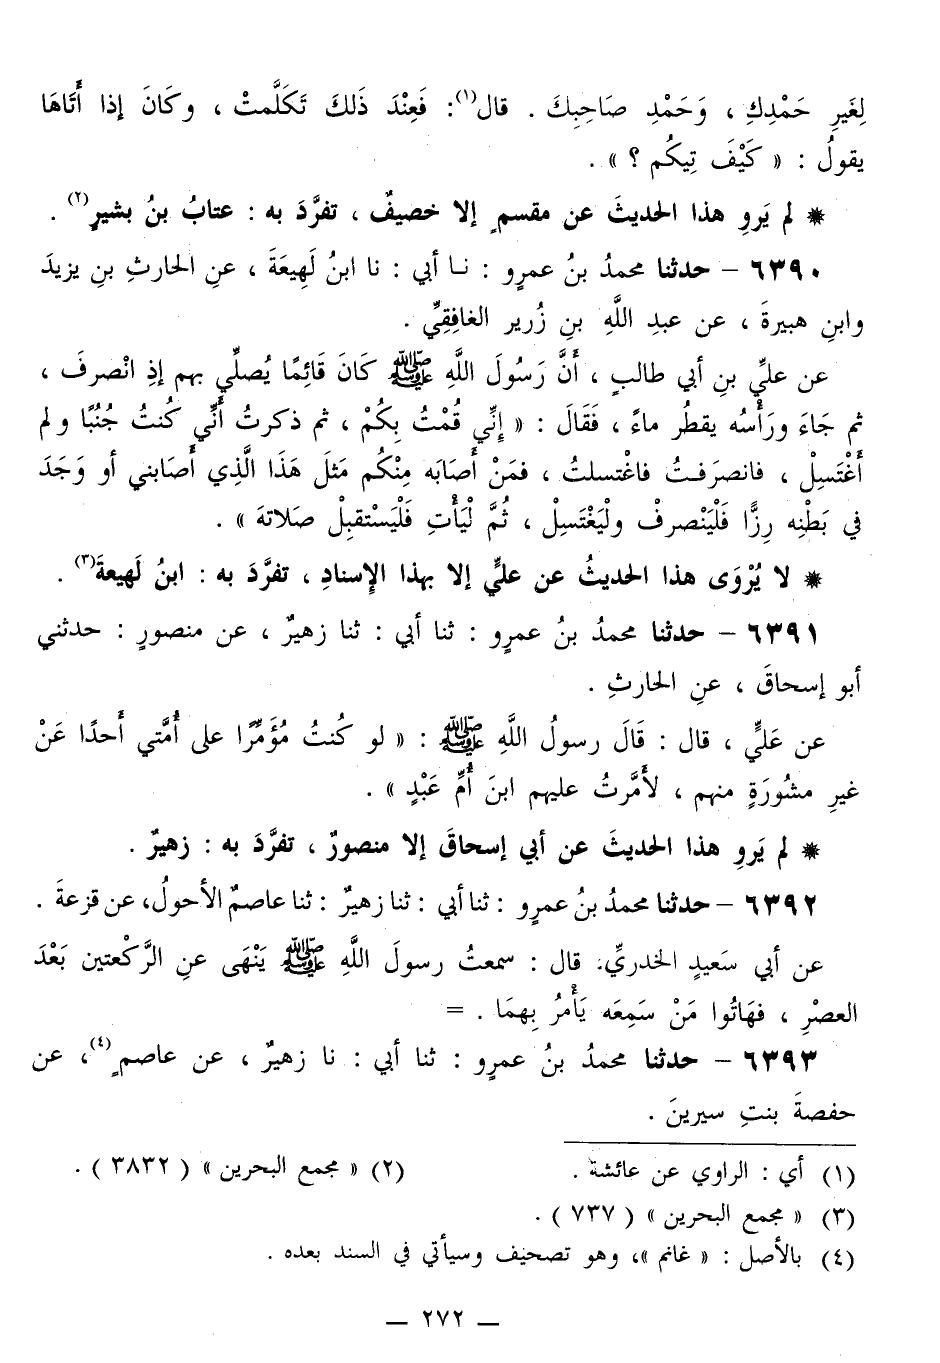 لِغَيرِ حَمْدِكِ ، وَحَمْدِ صَاحِبِكَ . قال(١): فَعِنْدَ ذَلكَ تَكَلَّمتْ ، وكَانَ إذا أَتَاهَا
يقولُ : « كَيْفَ تِيكُم ؟ » .
* لم يَروِ هذا الحديثَ عن مقسمٍ إلا خصيفٌ ، تفرَّدَ به : عتابُ بنُ بشيرٍ(٢) .
٦٣٩٠ – حدثنا محمدُ بنُ عمرٍو : نـا أبي : نا ابنُ لَهِيعَةَ ، عنِ الحارثِ بنِ يزيدَ
وابنِ هبيرةَ ، عن عبدِ اللَّهِ بنِ زُرير الغافِقِيِّ .
عن عليِّ بنِ أبي طالبٍ ، أَنَّ رَسُولَ اللَّهِ ﷺ كَانَ قَائِمًا يُصلِّي بهم إذِ انْصرفَ ،
ثم جَاءَ ورَأْسُه يقطُر ماءً ، فَقَالَ : « إِنِّي قُمْتُ بِكُمْ ، ثم ذكرتُ أَنِّي كُنتُ جُنُبًا ولم
أَغْتَسِلْ ، فانصرَفـتُ فاغْتسلتُ ، فمَنْ أَصَابَه مِنْكُم مَثلَ هَذَا الَّذِي أَصَابني أو وَجَدَ
في بَطْنِه رِزًّا فَلْيَنْصرفْ ولْيَغْتَسِلْ ، ثُمَّ لْيَأْتِ فَلْيَسْتقبِلْ صَلاتهَ » .
* لا يُرْوَى هذا الحديثُ عن عليٍّ إلا بهذا الإسنادِ ، تفرَّدَ به : ابنُ لَهيعةَ(٣) .
٦٣٩١ – حدثنا محمدُ بنُ عمرٍو : ثنا أبي : ثنا زهيرٌ ، عن منصورٍ : حدثني
أبو إسحاقَ ، عنِ الحارثِ .
عن عَليٍّ ، قال : قَالَ رسولُ اللَّهِ ﷺ : « لو كُنتُ مُؤَمِّرًا على أُمَّتي أَحدًا عَنْ
غيرِ مشُورَةٍ منهم ، لأَمَّرتُ عليهم ابنَ أُمِّ عَبْدٍ » .
* لم يَروِ هذا الحديثَ عن أبي إسحاقَ إلا منصورٌ ، تفرَّدَ به : زهيرٌ .
٦٣٩٢ – حدثنا محمدُ بنُ عمرٍو : ثنا أبي : ثنا زهيرٌ : ثنا عاصمٌ الأحولُ، عن قزعةَ .
عن أبي سَعيدٍ الخدريِّ، قال : سمعتُ رسولَ اللَّهِ ﷺ يَنْهَى عنِ الرَّكْعتين بَعْدَ
العصْرِ ، فهَاتُوا مَنْ سَمِعَه يَأْمرُ بِهمَا . =
٦٣٩٣ – حدثنا محمدُ بنُ عمرٍو : ثنا أبي : نا زهيرٌ ، عن عاصمٍ(٤)، عن
حفصةَ بنتِ سيرينَ .
(١) أي : الراوي عن عائشة . (٢) « مجمع البحرين » ( ٣٨٣٢ ) .
(٣) « مجمع البحرين » ( ٧٣٧ ) .
(٤) بالأصل : « غانم »، وهو تصحيف وسيأتي في السند بعده .
— ٢٧٢ —